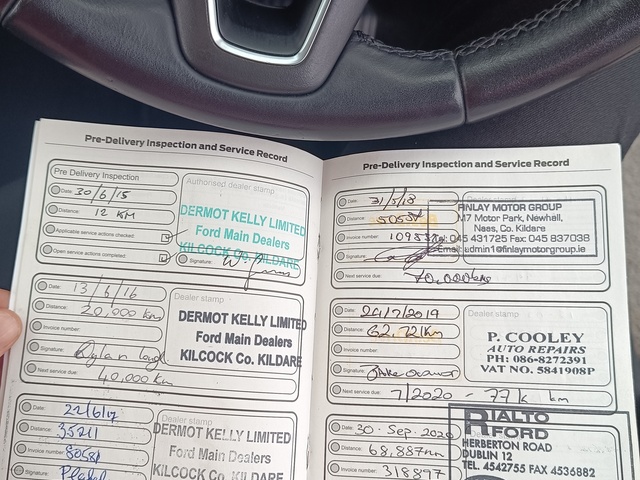 Pre-Delivery Inspection and Service Record
Pre Delivery Inspection
Date: 30/6/15
Distance: 12 KM
Applicable service actions checked:
Open service actions completed:
Authorised dealer stamp
DERMOT KELLY LIMITED
Ford Main Dealers
KILCOCK CO. KILDARE
Signature:
Date: 13/6/16
Distance: 20,000 km
Invoice number:
Signature:
Next service due:
40,000 km
Dealer stamp
DERMOT KELLY LIMITED
Ford Main Dealers
KILCOCK CO. KILDARE
Date: 22/6/17
Distance: 35211
Invoice number: 80581
Signature:
Dealer stamp
DERMOT KELLY LIMITED
Ford Main Dealers
KILCOCK CO. KILDARE
Pre-Delivery Inspection and Service Record
Date: 31/5/18
Distance:
Invoice number:
Signature:
Next service due: 70,000km
FINLAY MOTOR GROUP
M7 Motor Park, Newhall,
Naas, Co. Kildare
Tel: 045 431725 Fax: 045 837038
Email: admin1@finlaymotorgroup.ie
Date: 29/7/2019
Distance: 62,721km
Invoice number:
Signature:
Next service due: 7/2020 - 77k km
Dealer stamp
P. COOLEY
AUTO REPAIRS
PH: 086-8272391
VAT NO. 5841908P
Date: 30. Sep. 2020
Distance: 68,887km
Invoice number: 318897
RIALTO
FORD
HERBERTON ROAD
DUBLIN 12
TEL. 4542755 FAX 4536882